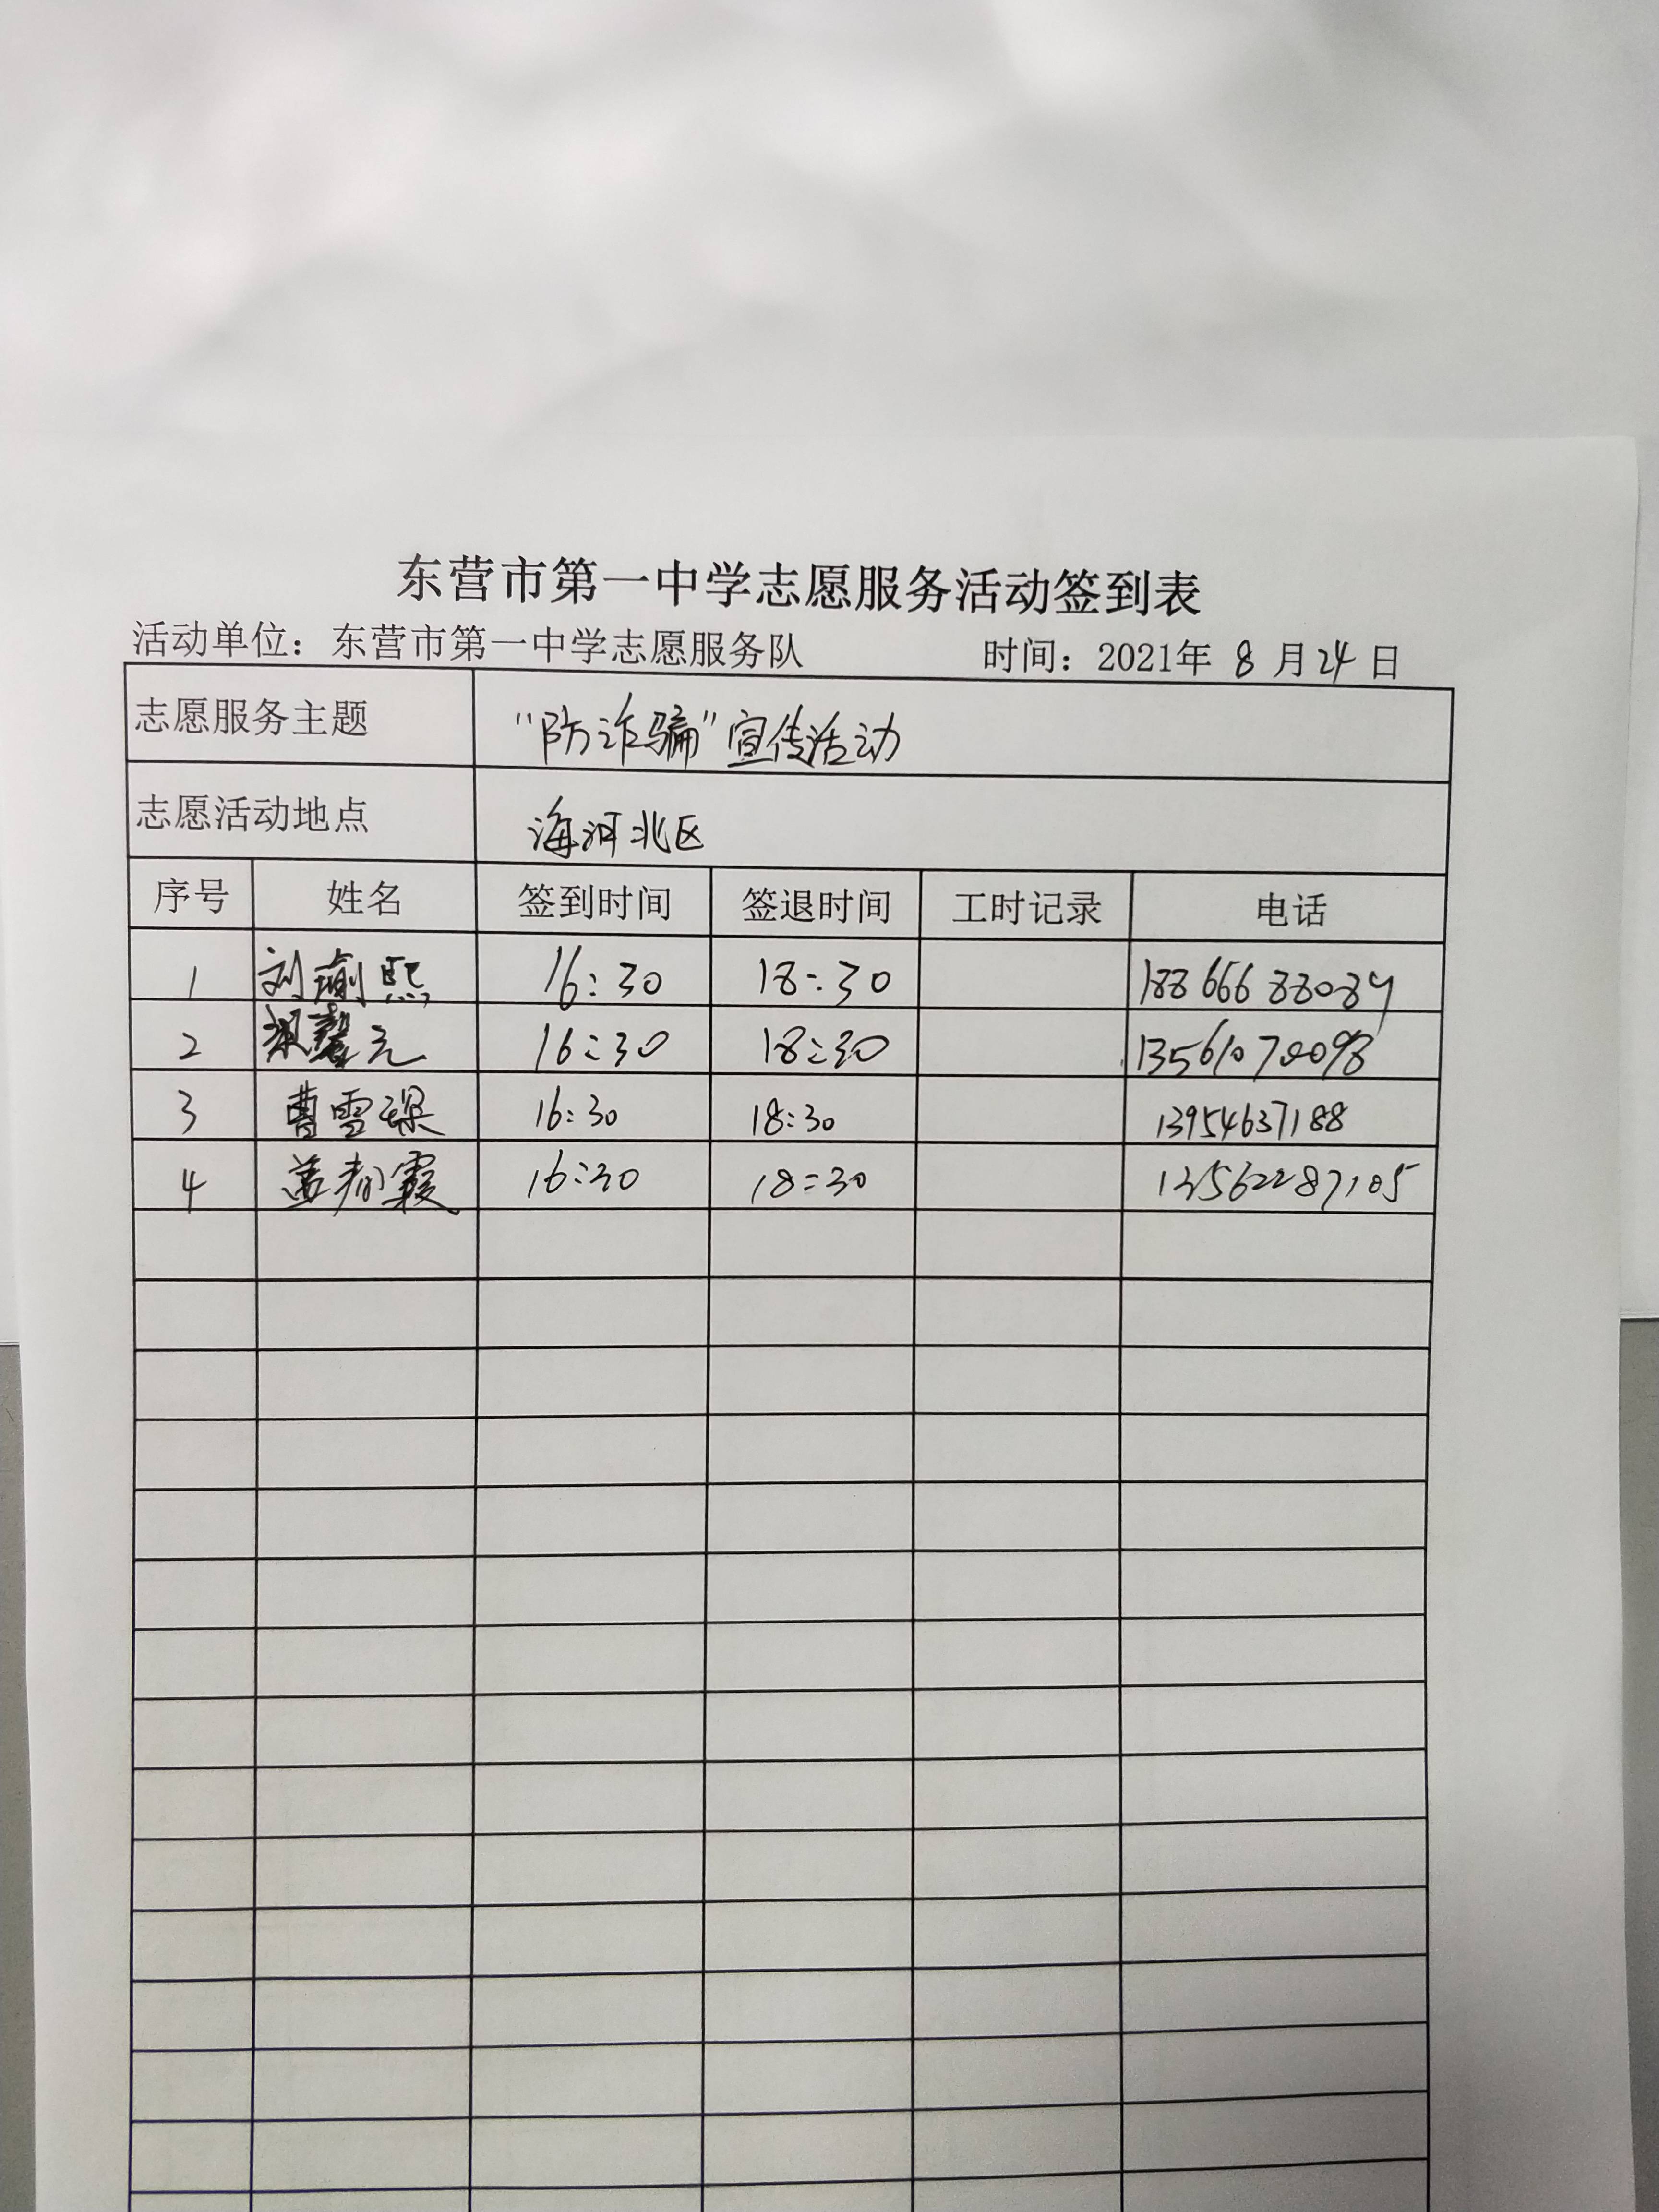 东营市第一中学志愿服务活动签到表
活动单位：东营市第一中学志愿服务队 时间：2021年 8 月 24 日
志愿服务主题 "防诈骗"宣传活动
志愿活动地点 海河北区
序号 姓名 签到时间 签退时间 工时记录 电话
1 刘瑜熙 16:30 18:30 18866688084
2 16:30 18:30 13561070098
3 曹雪琛 16:30 18:30 13954637188
4 盖春霞 16:30 18:30 13562287105